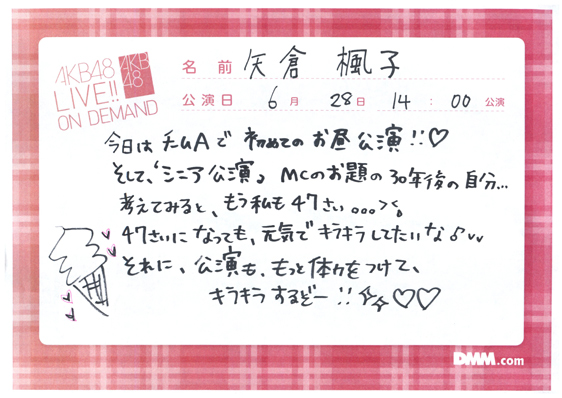 AKB48
LIVE!!
ON DEMAND
AKB
48
名前 矢倉 楓子
公演日 6月 28日 14:00 公演
今日は チームAで 初めての お昼公演!!♡
そして、「シニア公演」 MCのお題の30年後の自分...
考えてみると、もう私も47さい。。。><。
47さいになっても、元気でキラキラしてたいな♪
それに、公演も、もっと体力をつけて、
キラキラするぞー!!☆☆♡♡
DMM.com